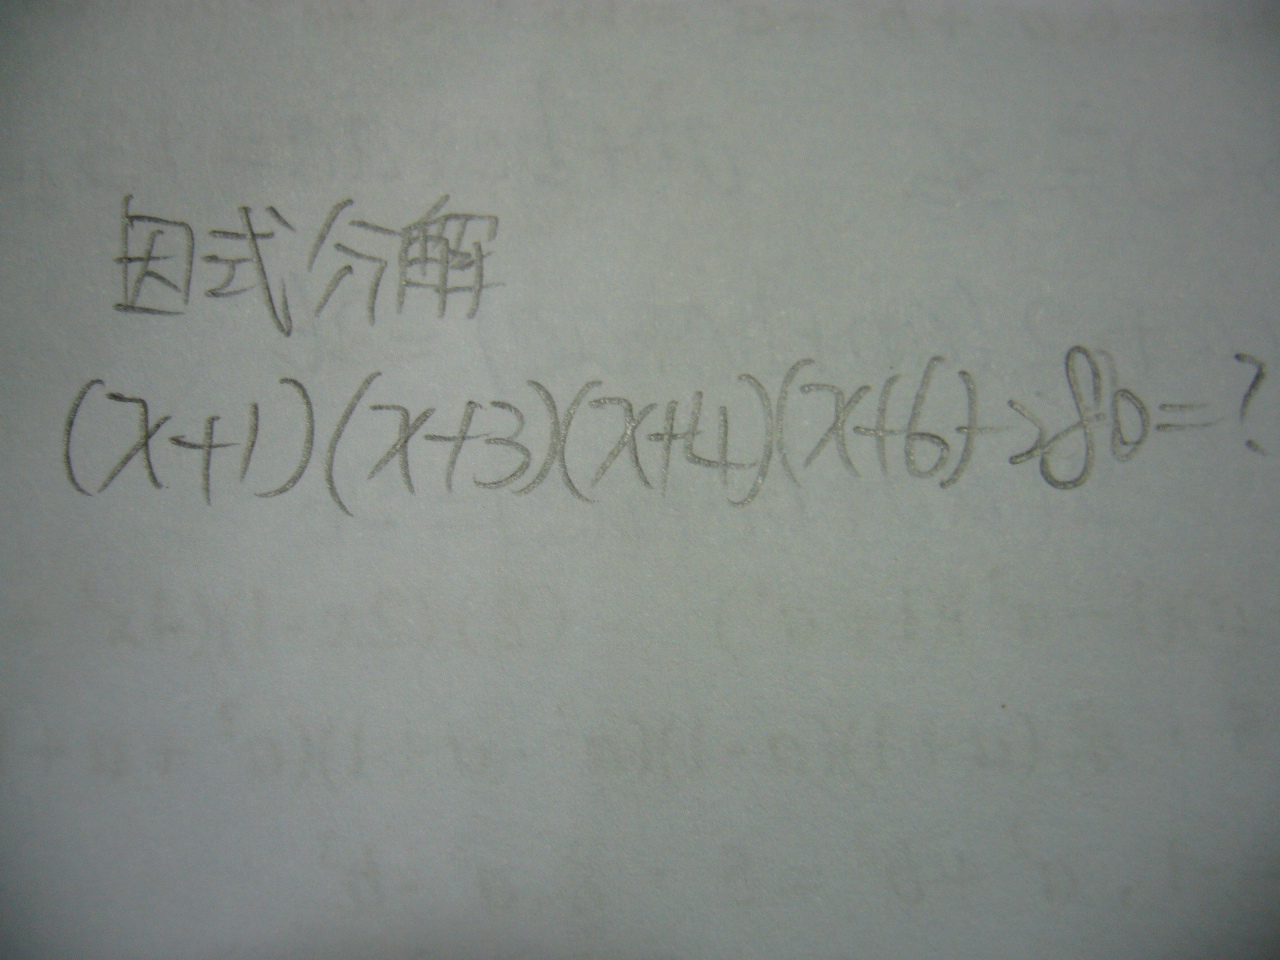 因式分解
(x+1)(x+3)(x+4)(x+6)-280=?